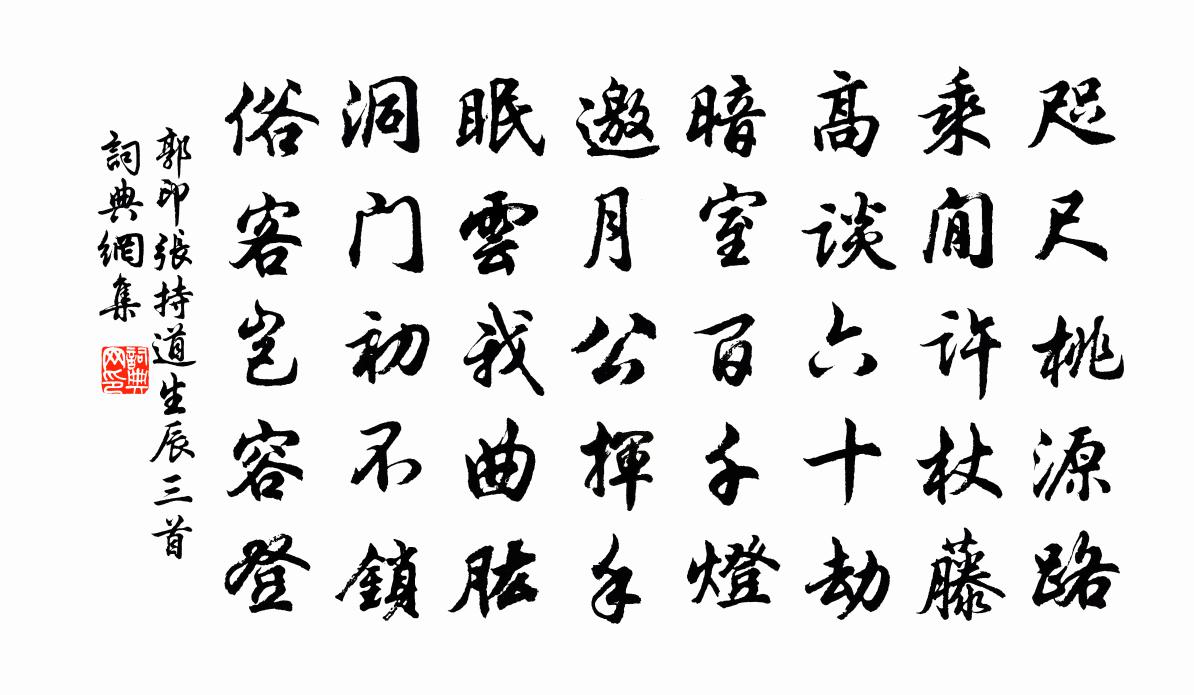 咫尺桃源路
乘閒許杖藤
高談六十劫
暗室百千燈
邀月公揮手
眠雲我曲肱
洞门初不鎖
俗客岂容登
郭印張持道生辰三首
詞典網集
詞典网印